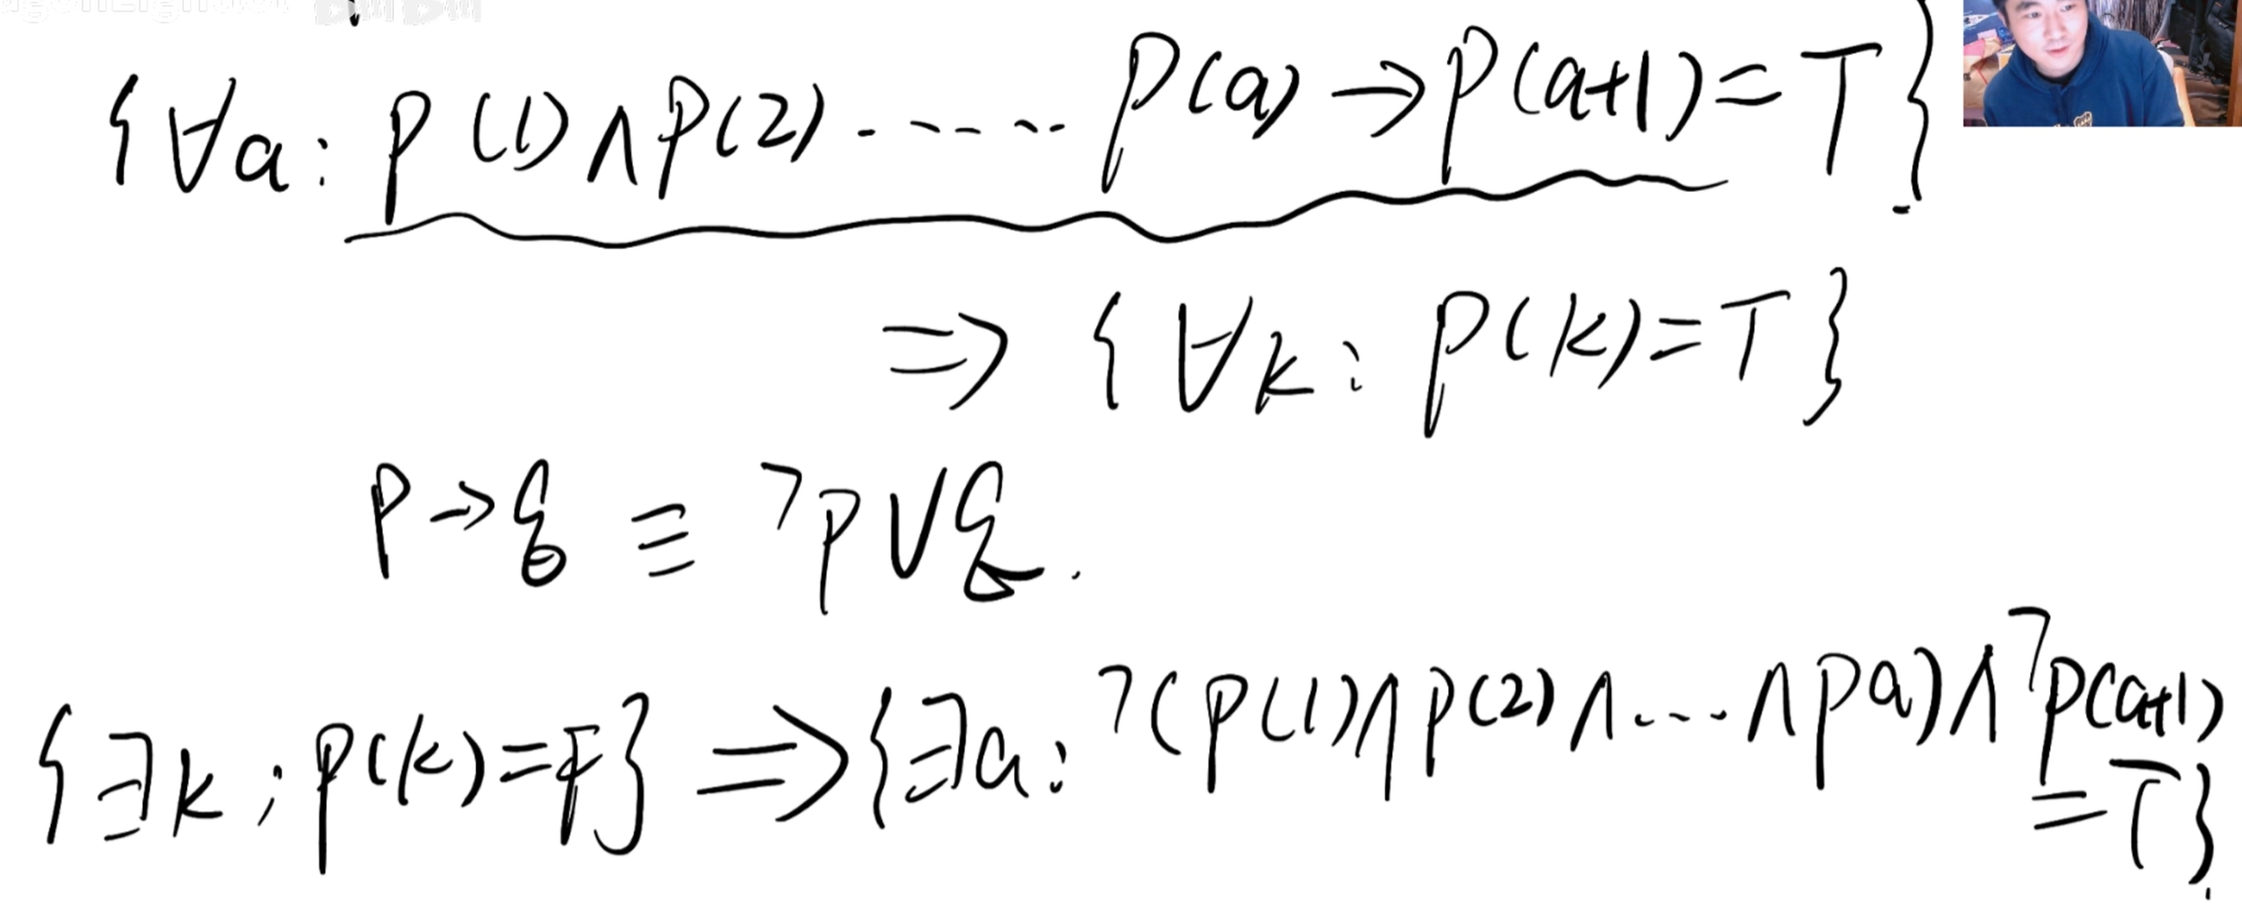 {∀a: P(1)∧P(2)------P(a)→P(a+1)=T}.
⇒ {∀k: P(k)=T}
P→q ≡ ¬P∨q.
{∃k; P(k)=F} ⇒ {∃a: ¬(P(1)∧P(2)∧...∧Pa)∧¬P(a+1)
=T}.